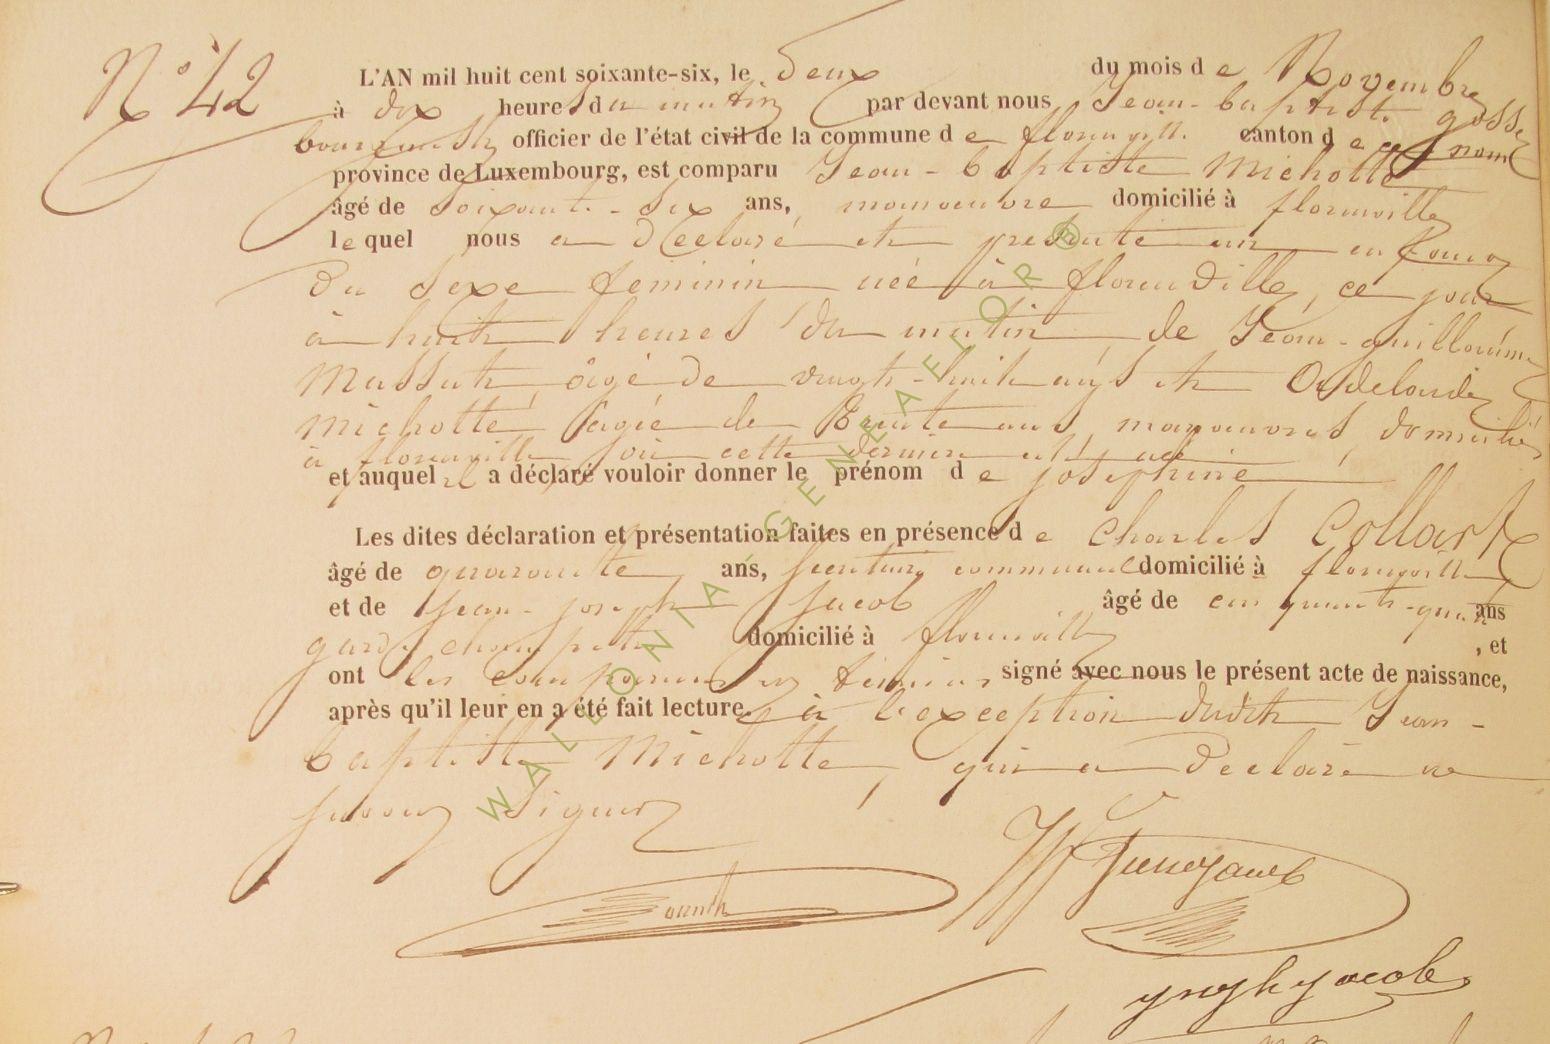 N° 42
L'AN mil huit cent soixante-six, le deux du mois de Novembre
à dix heures du matin par devant nous Jean-baptiste gosse
bourgmestre officier de l'état civil de la commune de florenville canton de ce nom
province de Luxembourg, est comparu Jean-baptiste Michotte
âgé de soixante-six ans, manoeuvre domicilié à florenville
lequel nous a déclaré et présenté un enfant
du sexe feminin née à florenville, ce jour
à huit heures du matin de Jean-guillaume
Massut âgé de vingt-huit ans et
michotte, âgée de trente ans, manoeuvres, domiciliés
à florenville, soit cette dernière
et auquel il a déclaré vouloir donner le prénom de joséphine
Les dites déclaration et présentation faites en présence de Charles Collart
âgé de quarante ans, secrétaire communal domicilié à florenville
et de jean-joseph jacob âgé de cinquante-quatre ans
garde champetre domicilié à florenville , et
ont les comparant et témoins signé avec nous le présent acte de naissance,
après qu'il leur en a été fait lecture. à l'exception dudit Jean-
baptiste Michotte, qui a déclaré ne
savoir signer
jacob
WALLONIA GENEAFLOR ®